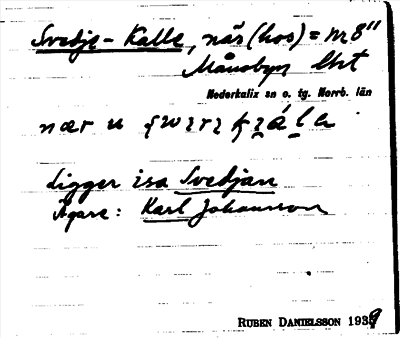 Svedje-Kalle, när (hos) = m 8"
Månsbyn
Nederkalix sn o. tg. Norrb. län
ligger isa Svedjan
Ägare: Karl Johansson
RUBEN DANIELSSON 1939